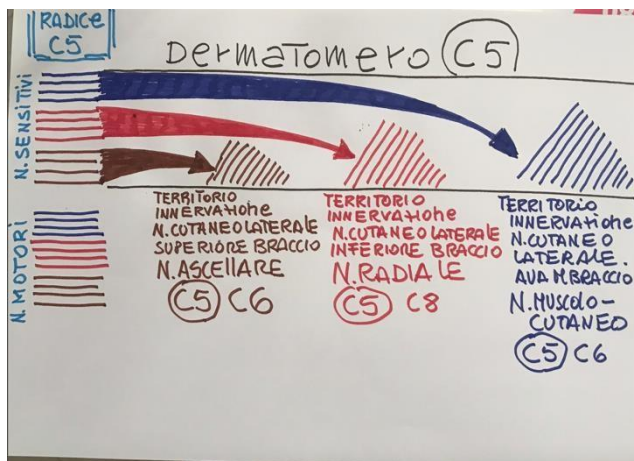 RADICE
C5
DermaTomero C5
N. SENSITIVI
N. MOTORI
TERRITORIO
INNERVATIOne
N.CUTANEO LATERALE
SUPERIORE BRACCIO
N. ASCELLARE
C5 C6
TERRITORIO
INNERVATIOne
N.CUTANEO LATERALE
INFERIORE BRACCIO
N. RADIALE
C5 C8
TERRITORIO
INNERVATIOne
N.CUTANEO
LATERALE.
AVAMBRACCIO
N. MUSCOLO-
CUTANEO
C5 C6